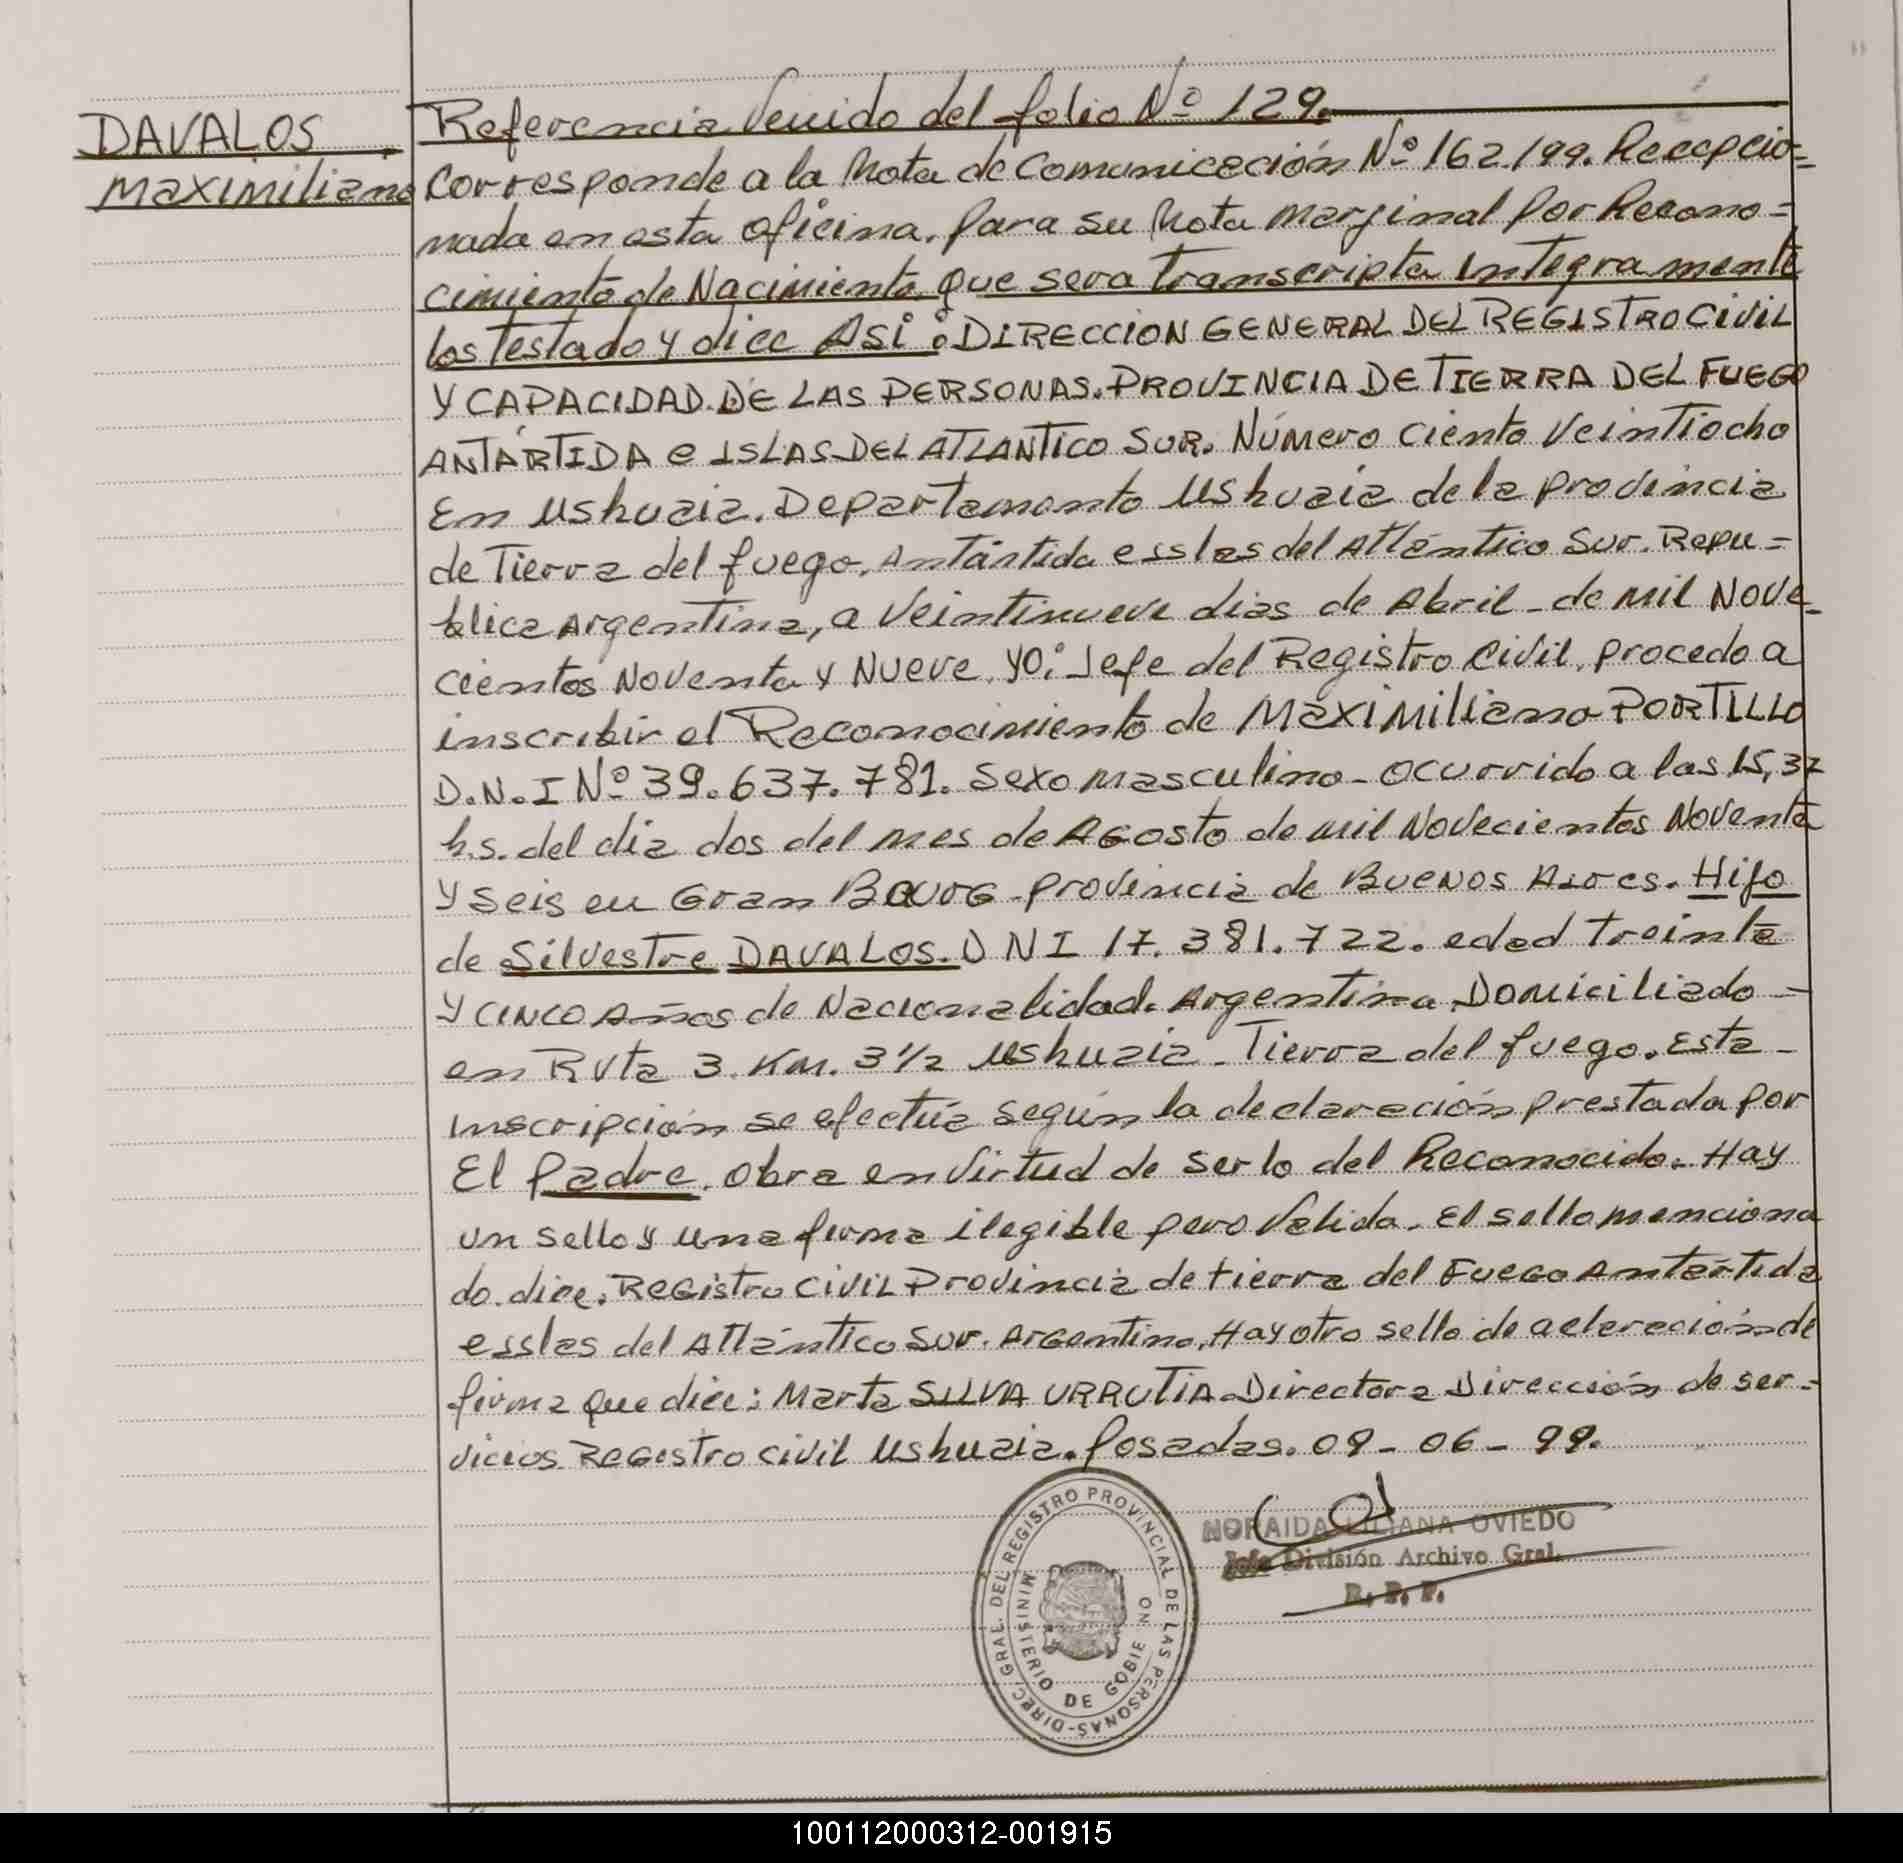 DAVALOS
Maximiliano
Referencia Venido del folio Nº 129.
Corresponde a la Nota de Comunicación Nº 162/99. Recepcio=
nada en esta oficina, para su Nota Marginal Por Recono=
cimiento de Nacimiento, Que sera Transcripta Integramente
los Testado y dice Asi: DIRECCION GENERAL DEL REGISTRO CIVIL
Y CAPACIDAD DE LAS PERSONAS. PROVINCIA DE TIERRA DEL FUEGO
ANTÁRTIDA e ISLAS DEL ATLANTICO SUR. Número Ciento Veintiocho
En Ushuaia. Departamento Ushuaia de la provincia
de Tierra del fuego, Antártida e Islas del Atlántico Sur. Repu=
blica Argentina, a Veintinueve dias de Abril - de mil Nove-
cientos Noventa y Nueve, yo: Jefe del Registro Civil, procedo a
inscribir el Reconocimiento de Maximiliano PORTILLO
D.N.I Nº 39.637.781. Sexo masculino - ocurrido a las 15,37
h.s. del dia dos del mes de Agosto de mil Novecientos Noventa
y Seis en Gran Bourg - provincia de Buenos Aires. Hijo
de Silvestre DAVALOS. DNI 17.381.722. edad Treinta
y cinco Años de Nacionalidad. Argentina Domiciliado -
en Ruta 3 Km. 3 1/2 Ushuaia - Tierra del fuego. Esta -
inscripción se efectúa según la declaración prestada por
El Padre. Obra en Virtud de serlo del Reconocido. Hay
un sello y una firma ilegible pero Valida. El sello menciona
do. dice. Registro Civil Provincia de tierra del Fuego Antártida
e Islas del Atlántico Sur. Argentino. Hay otro sello de acleración de
firma que dice: Marta SILVA URRUTIA Directora Dirección de ser-
vicios Registro civil Ushuaia. Posadas. 09-06-99.
DIREC. GRAL. DEL REGISTRO PROVINCIAL DE LAS PERSONAS
MINISTERIO DE GOBIERNO
NORAIDA LILIANA OVIEDO
Jefe División Archivo Gral.
R. P. P.
100112000312-001915